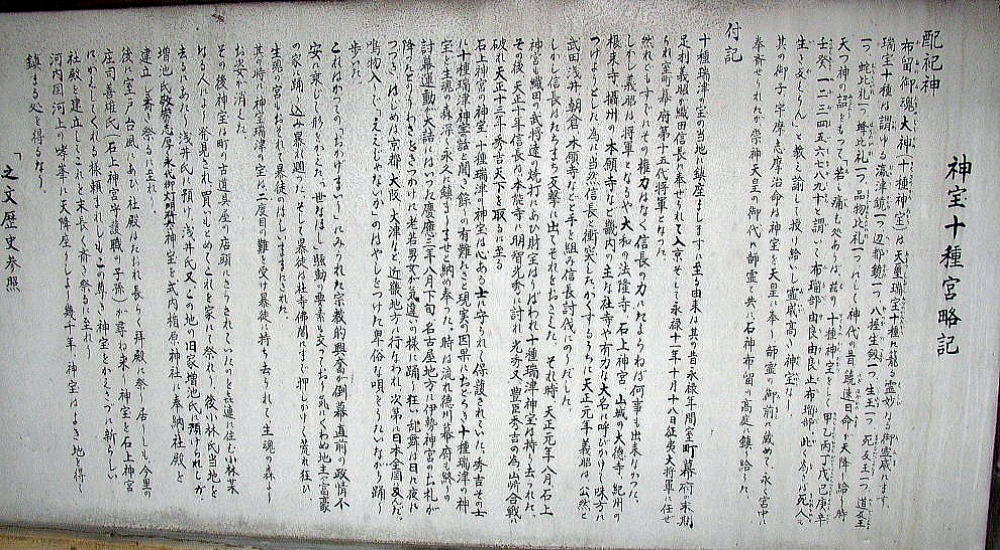 神宝十種宮略記
配祀神
布留御魂大神(十種神宝)は天璽瑞宝十種に籠る霊妙なる御霊威にます
瑞宝十種は謂ゆる瀛津鏡一つ 辺都鏡一つ 八握生剱一つ 生玉一つ 死反玉一つ 道反玉
一つ 蛇比礼一つ 蜂比礼一つ 品物比礼一つ にして神代の昔 饒速日命が天降り給し時
天つ神の詔をもって、若し痛む処あらば、茲の十種神宝をして甲乙丙丁戊己庚辛
壬癸一二三四五六七八九十と謂いて布瑠部由良由良止布瑠部 此く為ば死人
生きかえらんと教え諭して授け給いし霊威高き神宝なり
其の御子 宇摩志麻治命は神宝を天皇に奉り 部霊の御前に蔵めて、永く宮中に
奉斎せられたが崇神天皇の御代に部霊と共に石神布留の高庭に鎮り給うた
付記
十種瑞津の宝の当地に鎮座ましますに至る由来は其の昔永禄年間室町幕府末期
足利義昭が織田信長に奉ぜられて入京そして永禄十一年十月十八日征夷大将軍に任せ
られ室町幕府第十五代将軍となった。
然れどもすでにその権力はなく信長の力にたよらねば何事も出来なかった。
しかし義昭は将軍となるや大和の法隆寺、石上神宮 山城の大徳寺、紀州の
根来寺、摂州の本願寺など畿内の主な社寺や有力な大名に呼びかけして味方に
つけようとした為に当然信長と衝突したたかうするうちに天正元年義昭は公然と
武田浅井朝倉本願寺などと手を組み信長討伐にのりだした。
しかし信長のはたちまち反撃に出てそれをおさえた。それ時、天正元年八月石上
神宮も織田の武将達の焼打にあひ財宝はうばわれ十種瑞津神宝は持ち去った。
その後、天正十年信長は本能寺に明智光秀に討れ、光秀又豊臣秀吉の為山崎合戦に
破れ天正十三年秀吉天下を取るに至る
石上神宮の神宝 十種瑞津の神宝は心ある士に守られて保護されていた、秀吉その士
に十種瑞津神宝の話を聞き余りの有難さと現実の因果におどろき十種瑞津の神
宝を生魂の森深く永久に鎮りますませと納め奉った。時は流れ徳川幕府も終りの
討幕運動の大詰にはいった慶應三年八月下旬、名古屋地方に伊勢神宮のお札が
降ったというわさをきっかけに老若男女が気違いの様に踊り狂い、乱舞は日に夜に
つづき、はじめは京都、大阪、大津など近畿地方に行なわれ、次第に日本全国に及んだ。
鳴物入りで「ええじゃないか」のはやしをつけた卑俗な唄をうたいながら踊り
歩いた。
これはかつての「おかげまいり」にみうけられた宗教的興奮が倒幕直前の政情不
安に乗じ、形をかえた、世なおし騒動の要素も交っており 気にくわぬ地主や富豪
の家に踊り込み暴れ廻った。そして暴徒は社寺佛閣にまで押しかけ荒れ狂ひ、
生魂の宮もおそわれて暴徒のほしいままにされた。
其の時に神宝瑞津の宝は二度目の難を受け暴徒に持ち去られて生魂の森より
お姿が消えた。
その後神宝は町の古道具屋の店頭にさらされていたのを㐂連に住む小林某
なる人により発見され買いもとめてこれを家にて祭れり、後小林氏当地を
去るにあたり、浅井氏に預け、浅井氏又この地の旧家増池氏に預けられしが
増池氏敬恭志厚く神宝を式内楯原神社に奉納社殿を
建立し斎き祭るに至れり
後に室戸台風にあひ社殿はたおれ長らく拝殿に祭り居りしも、今里の
庄司善雄氏(石上神宮守護職の子孫)が尋ね来り神宝を石上神宮
にかえしてくれる様頼まれしも、この尊き神宝をかえさづに新らしい
社殿を建立しこれを末永く斎き祭るに至れり
河内国河上の哮峯に天降座りしより幾千年、神宝はよき地を得て
鎮まる処を得るなり。
「之文歴史参照